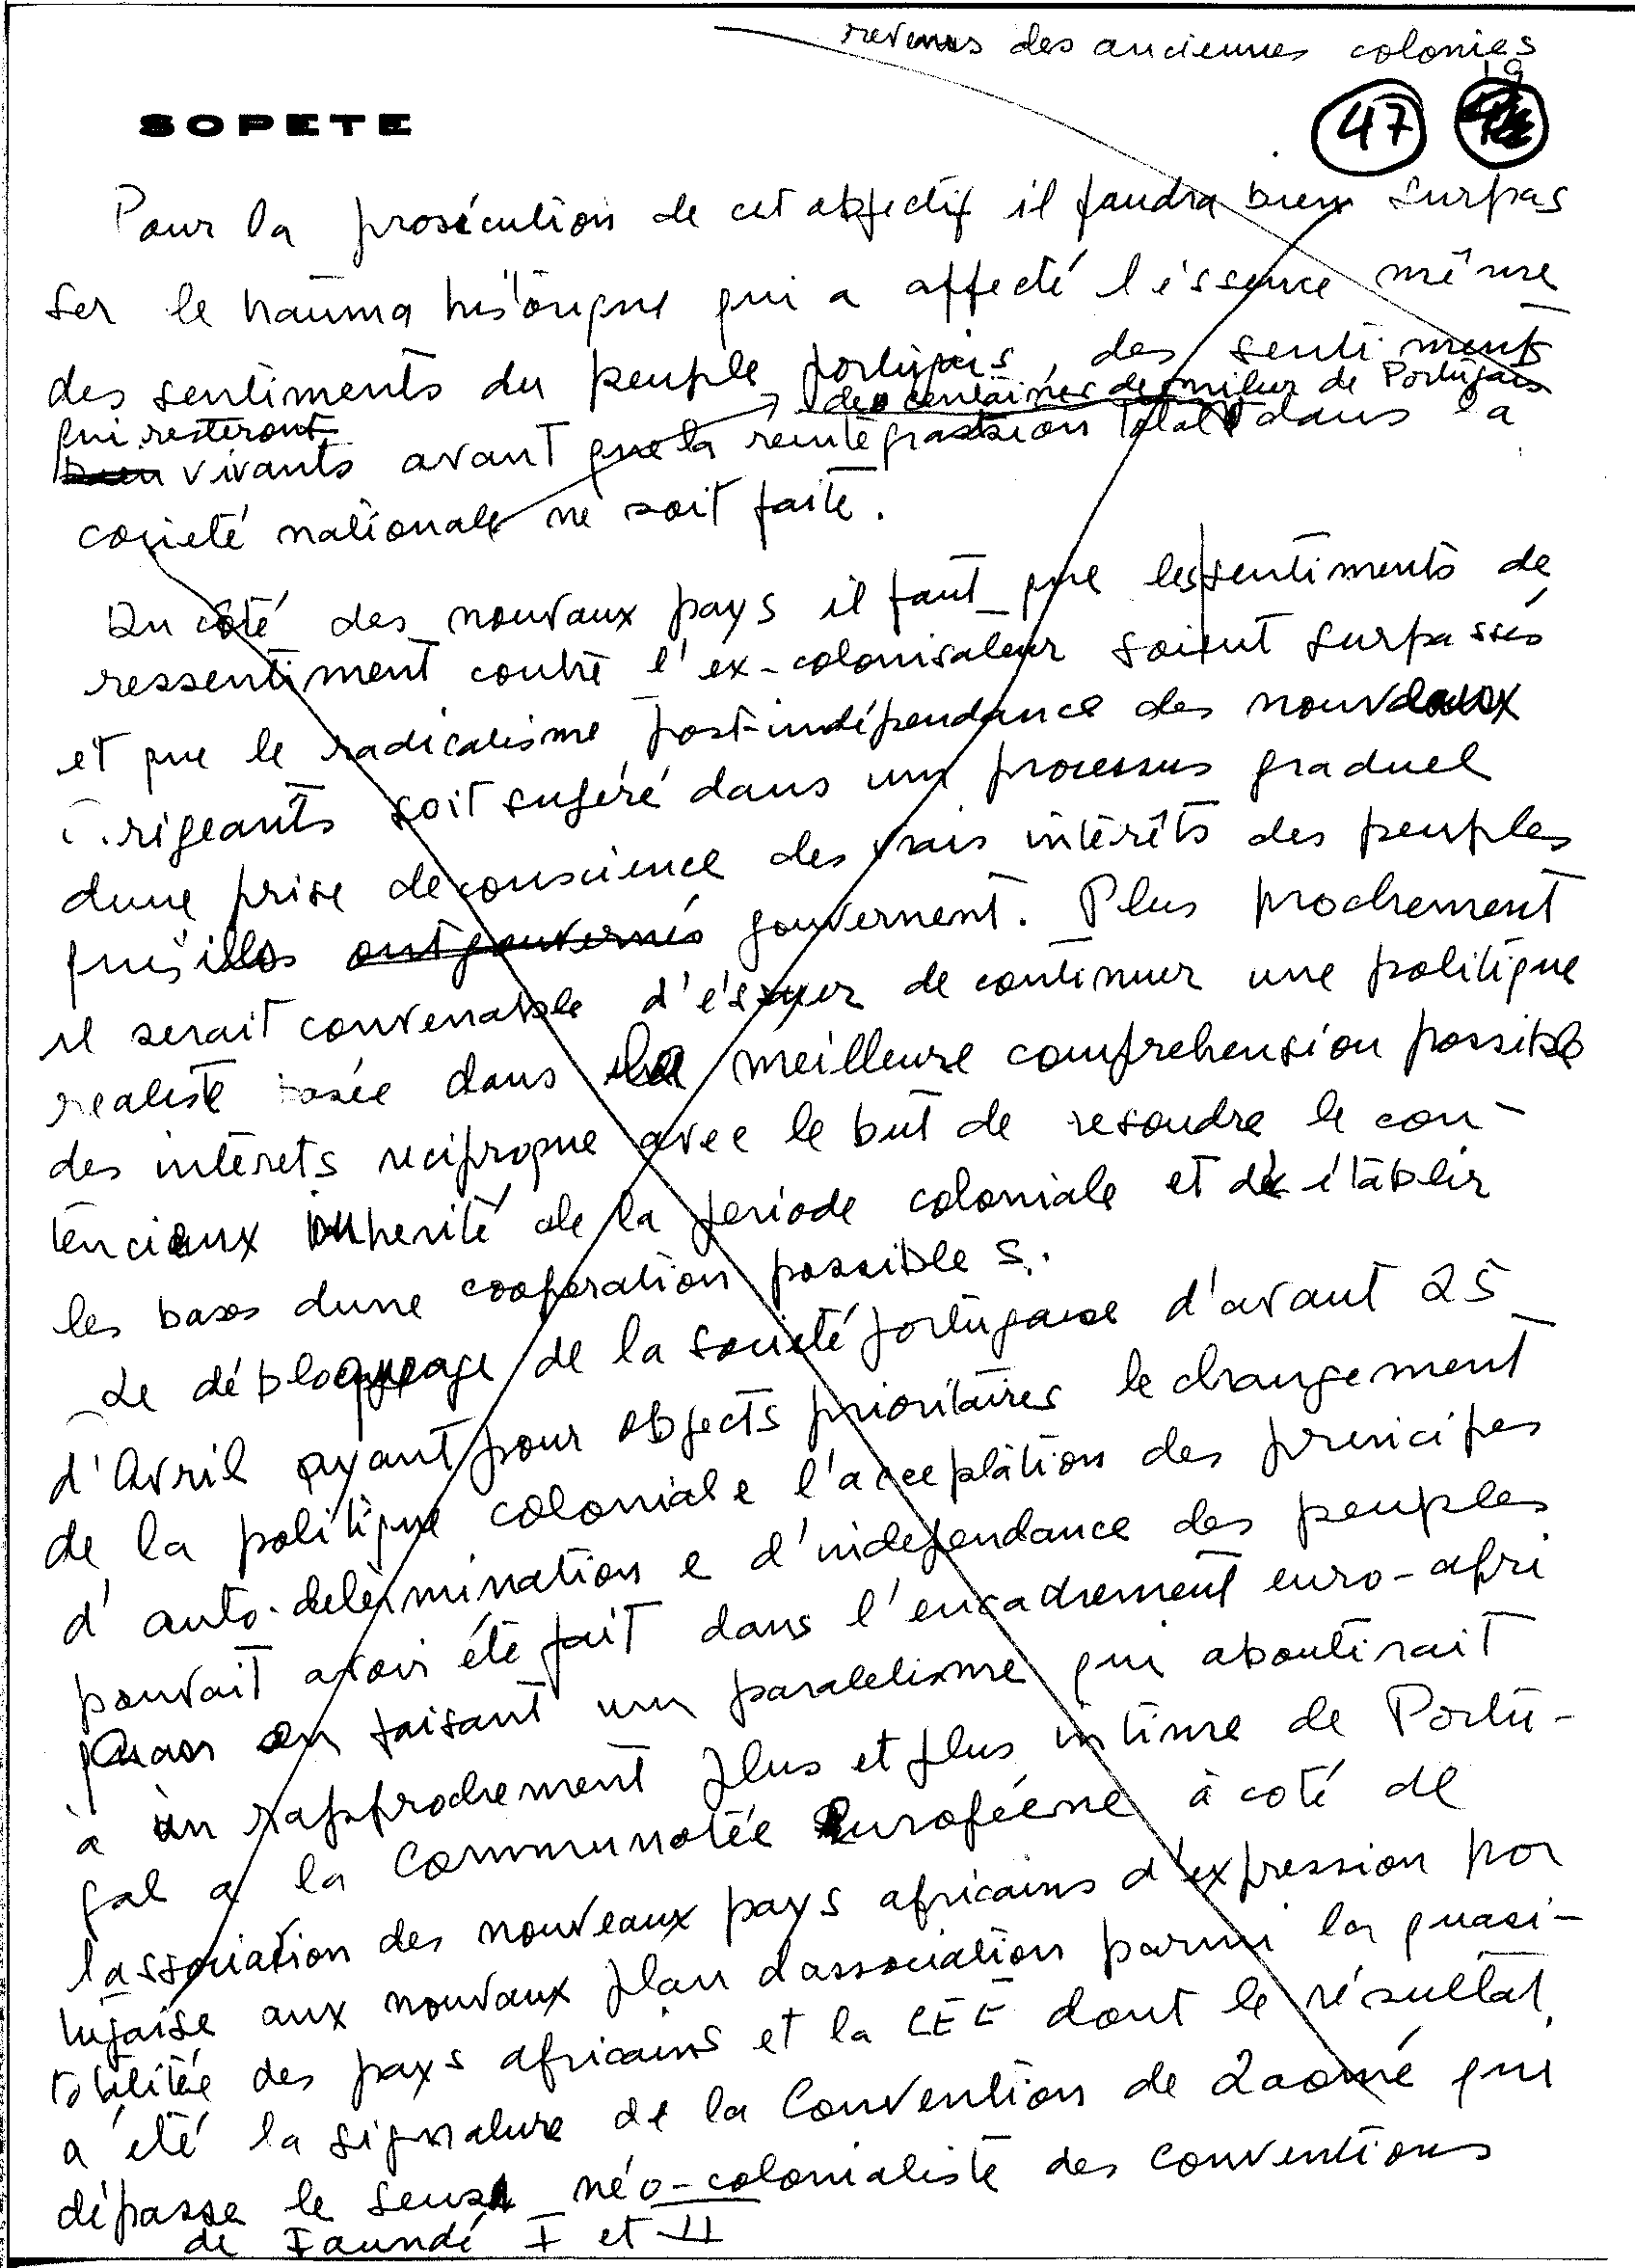 revenus des anciennes colonies
19
SOPETE
47
Pour la prosécution de cet objectif il faudra bien surpas
ser le trauma historique qui a affecté l'éssence même
des sentiments du peuple portugais, des sentiments
des centaines de milier de Portugais
qui resteront
vivants avant que la reintegration total dans la
société nationale ne soit faite.
Du côté des nouvaux pays il faut que les sentiments de
ressentiment contre l'ex-colonisateur soient surpassés
et que le radicalisme post-indépendance des nouveaux
dirigeants soit sugéré dans un processus graduel
dune prise de conscience des vrais intérêts des peuples
qu'ills ont gouvernés gouvernent. Plus prochement
il serait convenable d'éssayer de continuer une politique
realiste basée dans la meilleure comprehension possible
des intérets reciproque avec le but de resoudre le con-
tencieux inherité de la periode coloniale et de établir
les bases dune cooperation possible s.
Le débloquage de la societé portugaise d'avant 25
d'Avril ayant pour objects prioritaires le changement
de la politique coloniale l'acceptation des principes
d'auto-determination e d'independance des peuples
pouvait avoir été fait dans l'encadrement euro-afri
en faisant un paralelisme qui aboutirait
à un rapprochement plus et plus intime de Portu-
gal a la Communotée Européene à coté de
lassociation des nouveaux pays africains d'expression por
tugaise aux nouvaux plan dassociation parmi la quasi-
totalitée des pays africains et la CEE dont le résultat
a été la signature de la Convention de Laomé qui
dépasse le sens néo-colonialiste des conventions
de Iaundé I et II